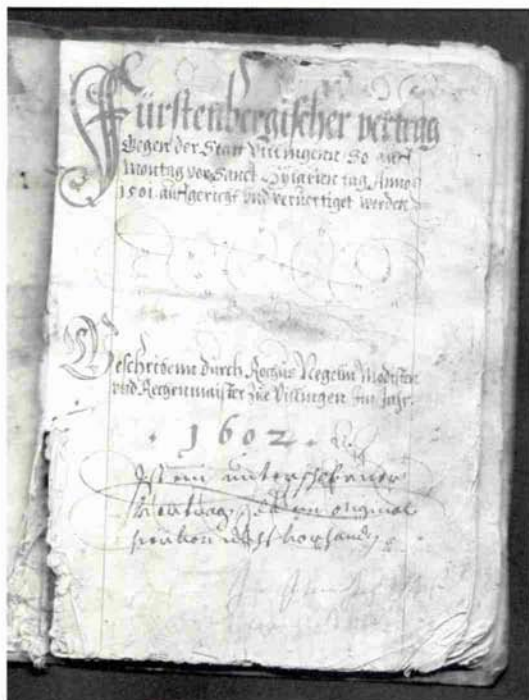 Fürstenbergischer vertrag
Gegen der Statt Villingenn so auff
Montag vor Sanct Hylarien tag Anno
1501 auffgericht und veruertiget worden
Beschribenn durch Rochus Negelin Modisten
und Rechenmaister zue Villingen Im Jahr.
1602
Ist ein unterschribner
Vertrag, original
nicht vorhanden